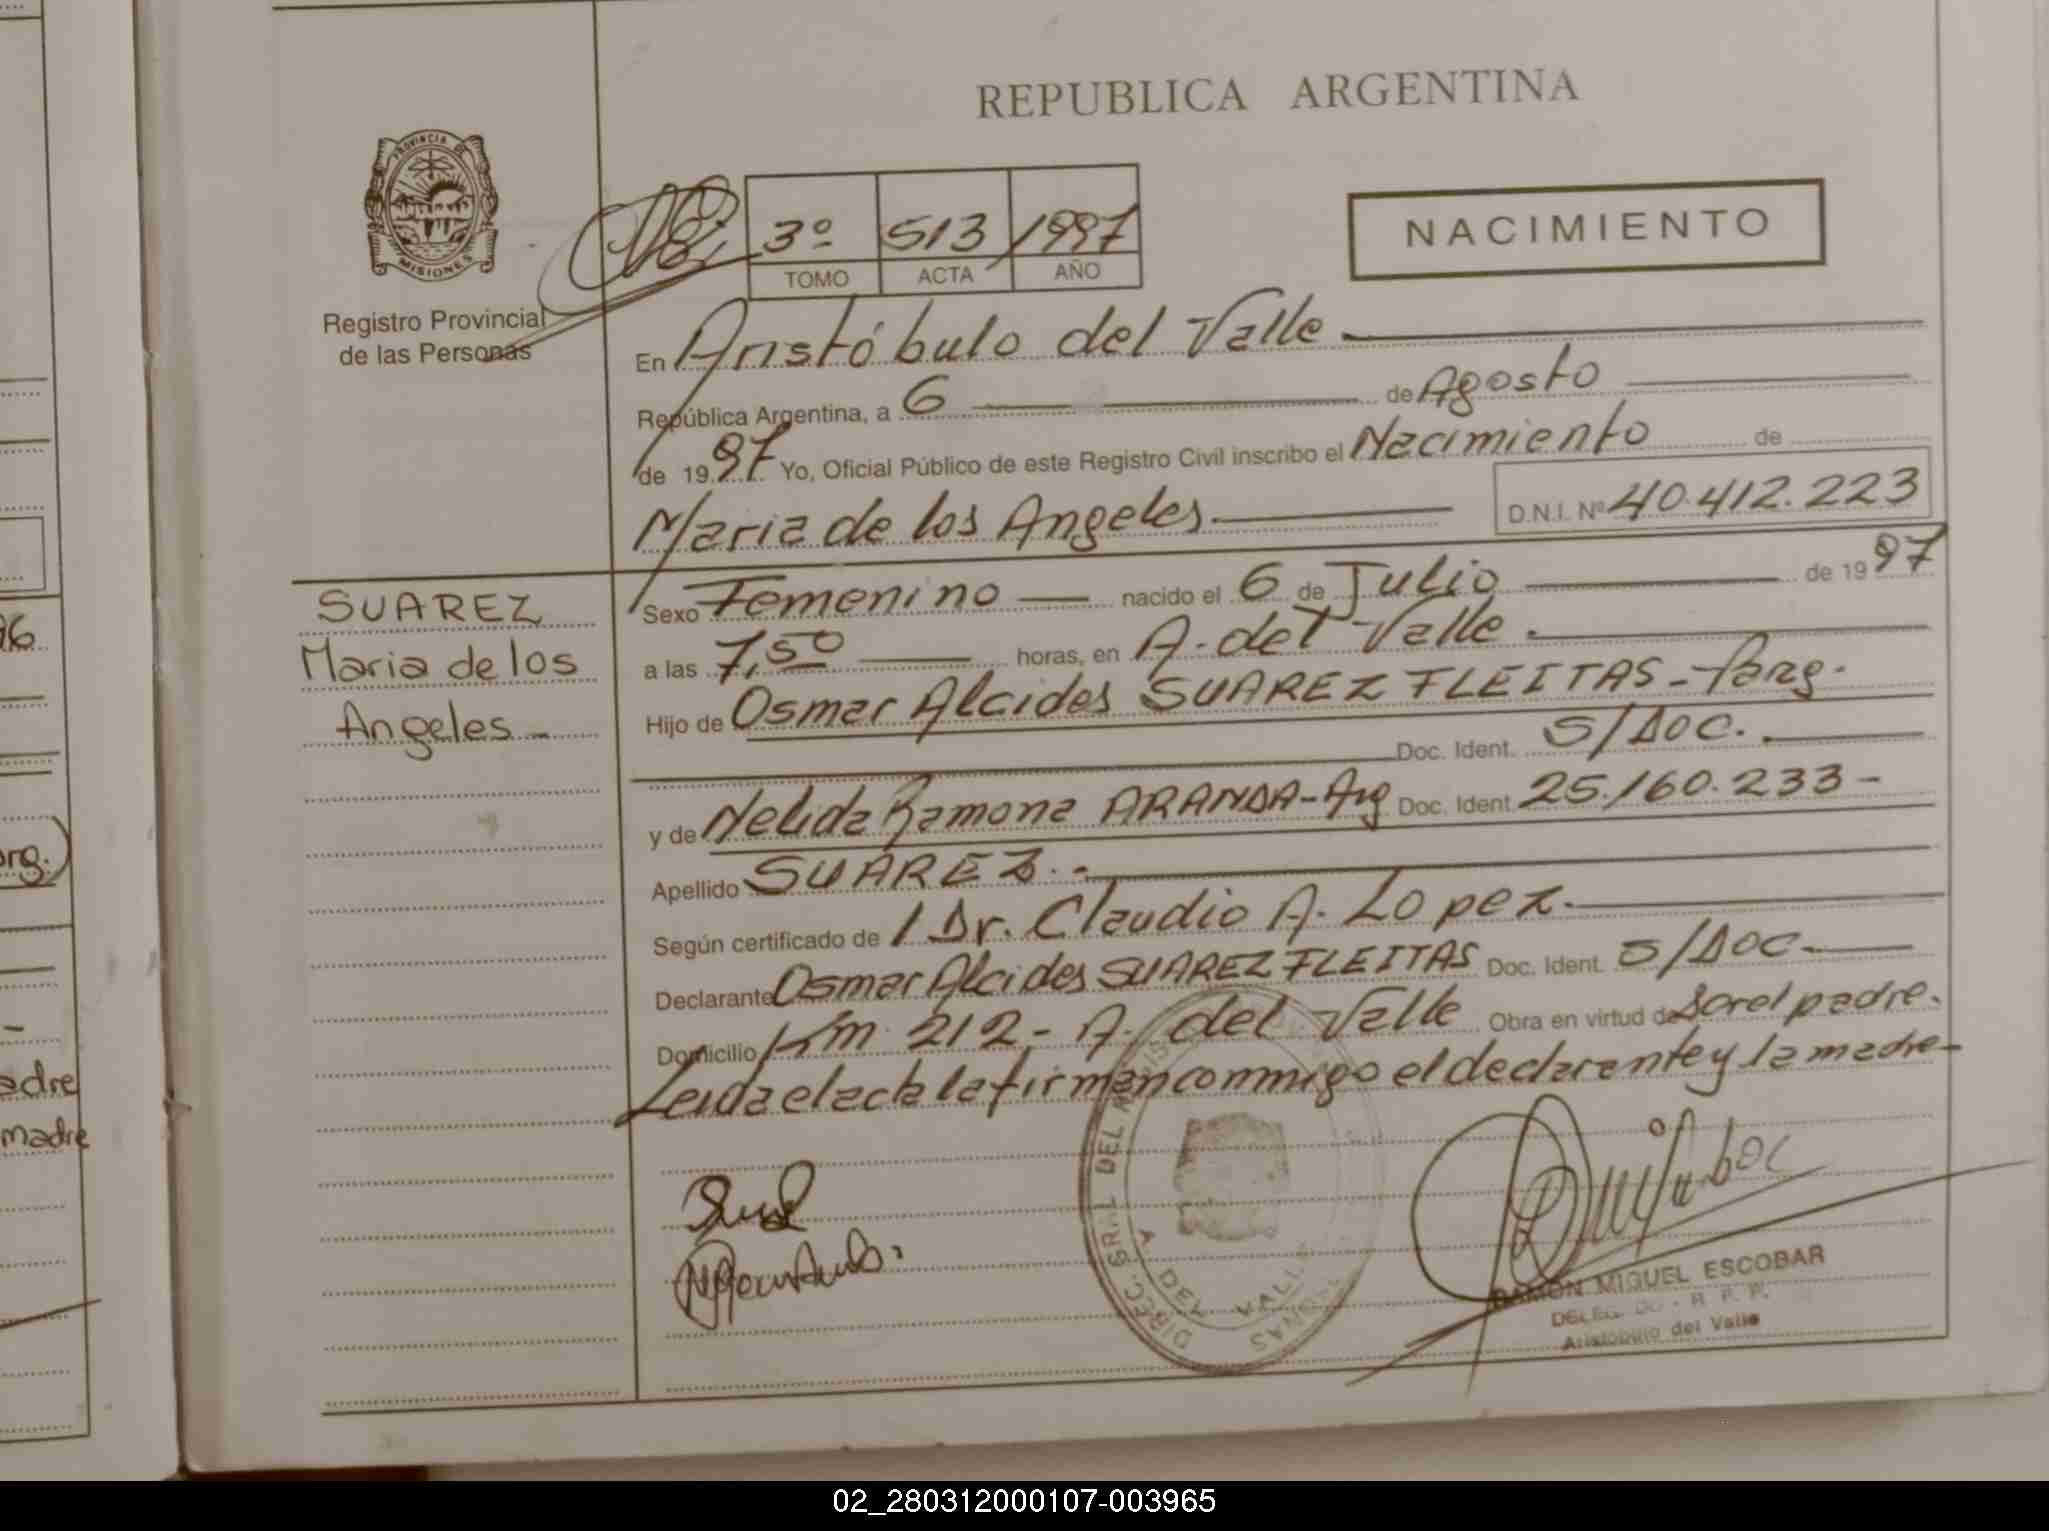 REPUBLICA ARGENTINA
PROVINCIA DE
MISIONES
Registro Provincial
de las Personas
3º 513 1997
TOMO ACTA AÑO
NACIMIENTO
En Aristóbulo del Valle
República Argentina, a 6 de Agosto
de 1997 Yo, Oficial Público de este Registro Civil inscribo el Nacimiento de
Maria de los Angeles D.N.I. Nº 40.412.223
SUAREZ
Maria de los
Angeles -
Sexo Femenino nacido el 6 de Julio de 1997
a las 7,50 horas, en A. del Valle.
Hijo de Osmar Alcides SUAREZ FLEITAS - Parg.
Doc. Ident. S/DOC.
y de Nelida Ramona ARANDA - Arg Doc. Ident. 25.160.233 -
Apellido SUAREZ.-
Según certificado de 1 Dr. Claudio A. Lopez.
Declarante Osmar Alcides SUAREZ FLEITAS Doc. Ident. S/DOC-
Domicilio Km 212 - A. del Valle Obra en virtud de ser el padre.
Leida el acta la firman conmigo el declarante y la madre-
DIREC. GRAL DEL
A DEL VALLE
RAMON MIGUEL ESCOBAR
DELEGADO - R. P. P.
Aristobulo del Valle
96
arg.)
adre
madre
02_280312000107-003965